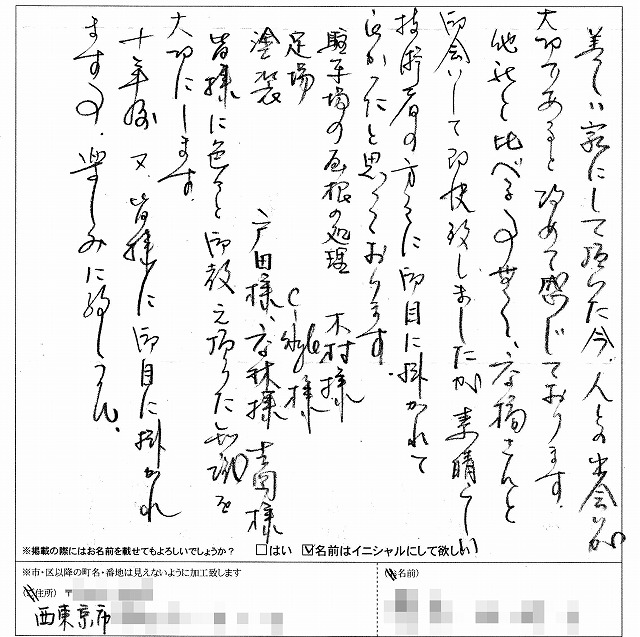 美しい家にして頂いた今、人との出会いが
大切であると改めて感じております。
他社と比べる事無く、高橋さんと
御会いして即決致しましたが素晴らしい
技術者の方々に御目に掛かれて
良かったと思っております。
駐車場の屋根の処理 木村様
足場 C-style様
塗装 戸田様、若林様 吉岡様
皆様に色々と御教え頂いた知識を
大切にします。
十年後 又、皆様に御目に掛かれ
ます事、楽しみに致しつつ。
※掲載の際にはお名前を載せてもよろしいでしょうか? □はい ☑名前はイニシャルにして欲しい
※市・区以降の町名・番地は見えないように加工致します
住所) 〒
西東京市
名前)